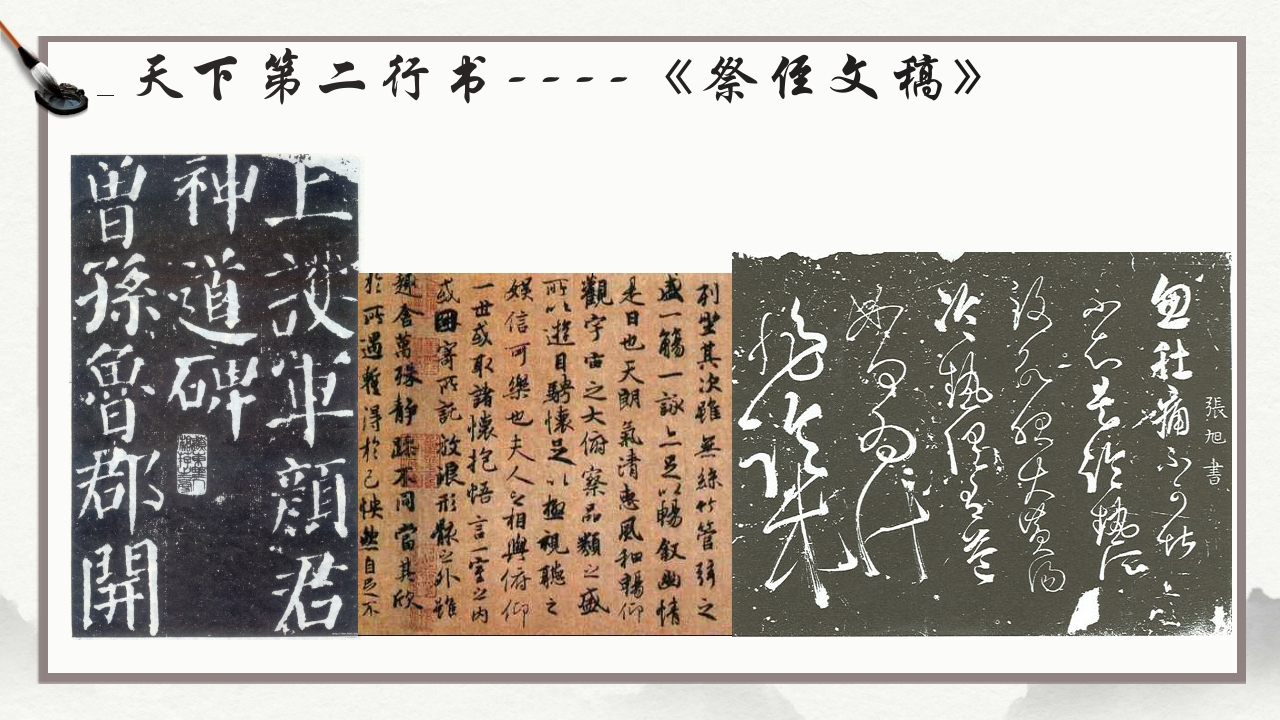 天下第二行书----《祭侄文稿》
上護軍顏君
神道碑
曾孫魯郡開
列坐其次雖無絲竹管弦之
盛一觴一詠亦足以暢敘幽情
是日也天朗氣清惠風和暢仰
觀宇宙之大俯察品類之盛
所以遊目騁懷足以極視聽之
娛信可樂也夫人之相與俯仰
一世或取諸懷抱悟言一室之內
或因寄所託放浪形骸之外雖
趣舍萬殊靜躁不同當其欣
於所遇蹔得於己怏然自足不
張旭書
忽肚痛不可堪
不知是冷熱所
致欲服大黃湯
冷熱俱有益
如何為計